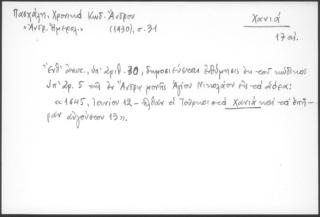 Πασχάλη, Χρονικά Κωδ. Άνδρου
Χανιά
"Ανδρ. Ημερολ." (1930), σ. 31
17 αι.
υπ' αριθ. 30, δημοσιεύεται ενθύμησις εκ του κώδικος
υπ' αρ. 5 της εν Άνδρω μονής Αγίου Νικολάου
« 1645, Ιουνίου 12 – ήλθαν οι Τούρκοι στα Χανιά και τα επή-
ραν αυγούστου 13 ».